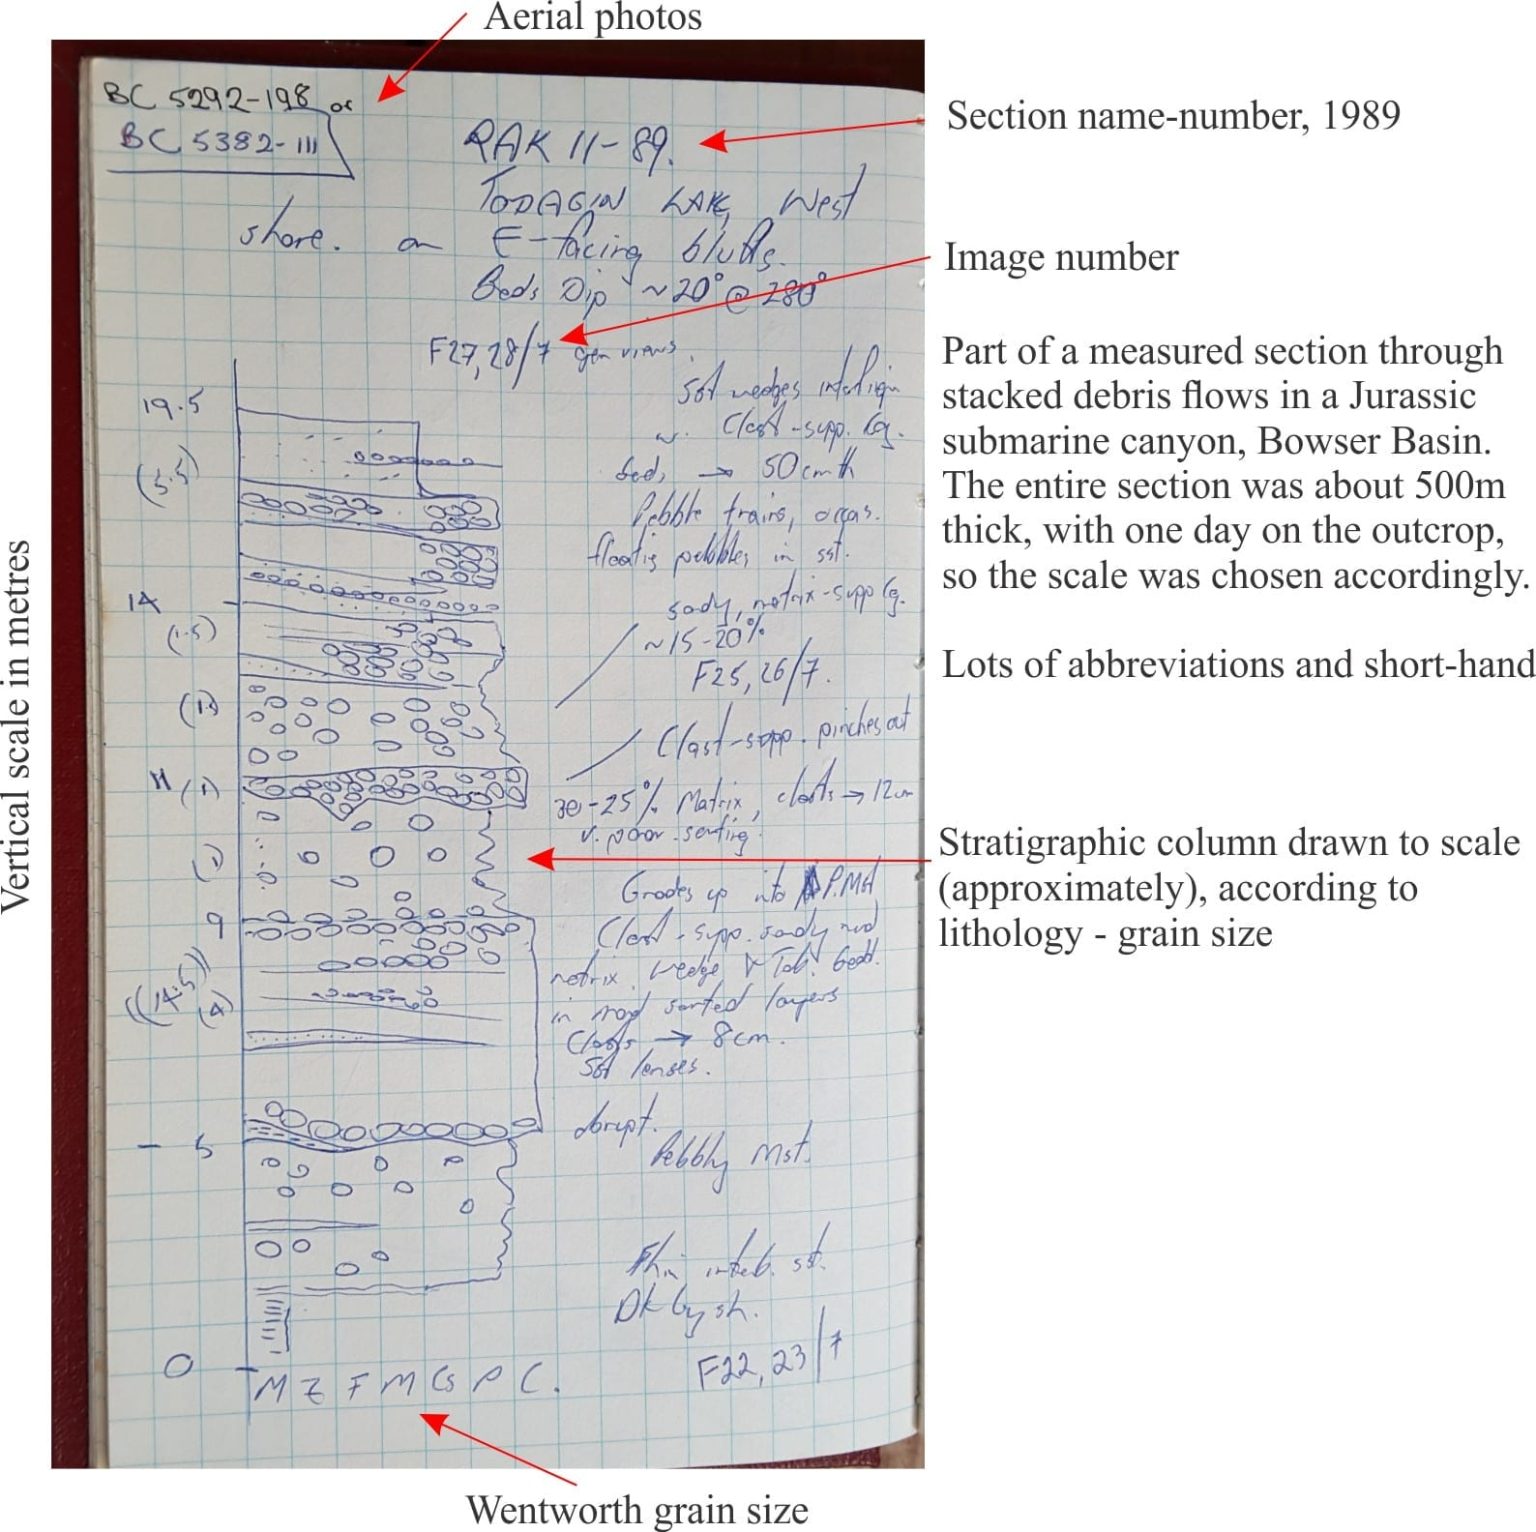 Aerial photos
BC 5292-198 or
BC 5382-111
RAK 11-89.
Section name-number, 1989
TODAGIN LAKE, West
shore. on E-facing bluffs.
Image number
Beds Dip ~20° @ 280°
F27, 28/7 gen views.
Part of a measured section through
stacked debris flows in a Jurassic
submarine canyon, Bowser Basin.
The entire section was about 500m
thick, with one day on the outcrop,
so the scale was chosen accordingly.
Sst wedges
19.5
w. Clast-supp. Cg.
beds → 50cm th
(5.5)
Pebble trains, occas.
floatig pebbles in sst.
14
sady, matrix-supp Cg.
(1.5)
~15-20%
F25, 26/7.
Lots of abbreviations and short-hand
Clast-supp. pinches out
11 (1)
25% Matrix, clasts → 12cm
v. poor sorting.
Vertical scale in metres
Stratigraphic column drawn to scale
(approximately), according to
lithology - grain size
(1)
Grades up into P.Mst
9
Clast-supp. sandy mud
matrix. Wedge & Tab. bedd.
((14.5))
(4)
in mod sorted layers
Clasts → 8cm.
Sst lenses.
abrupt.
- 5
Pebbly Mst.
Thin interb. sst.
Dk Gy sh.
F22, 23/7
0
M Z F M Cs P C.
Wentworth grain size